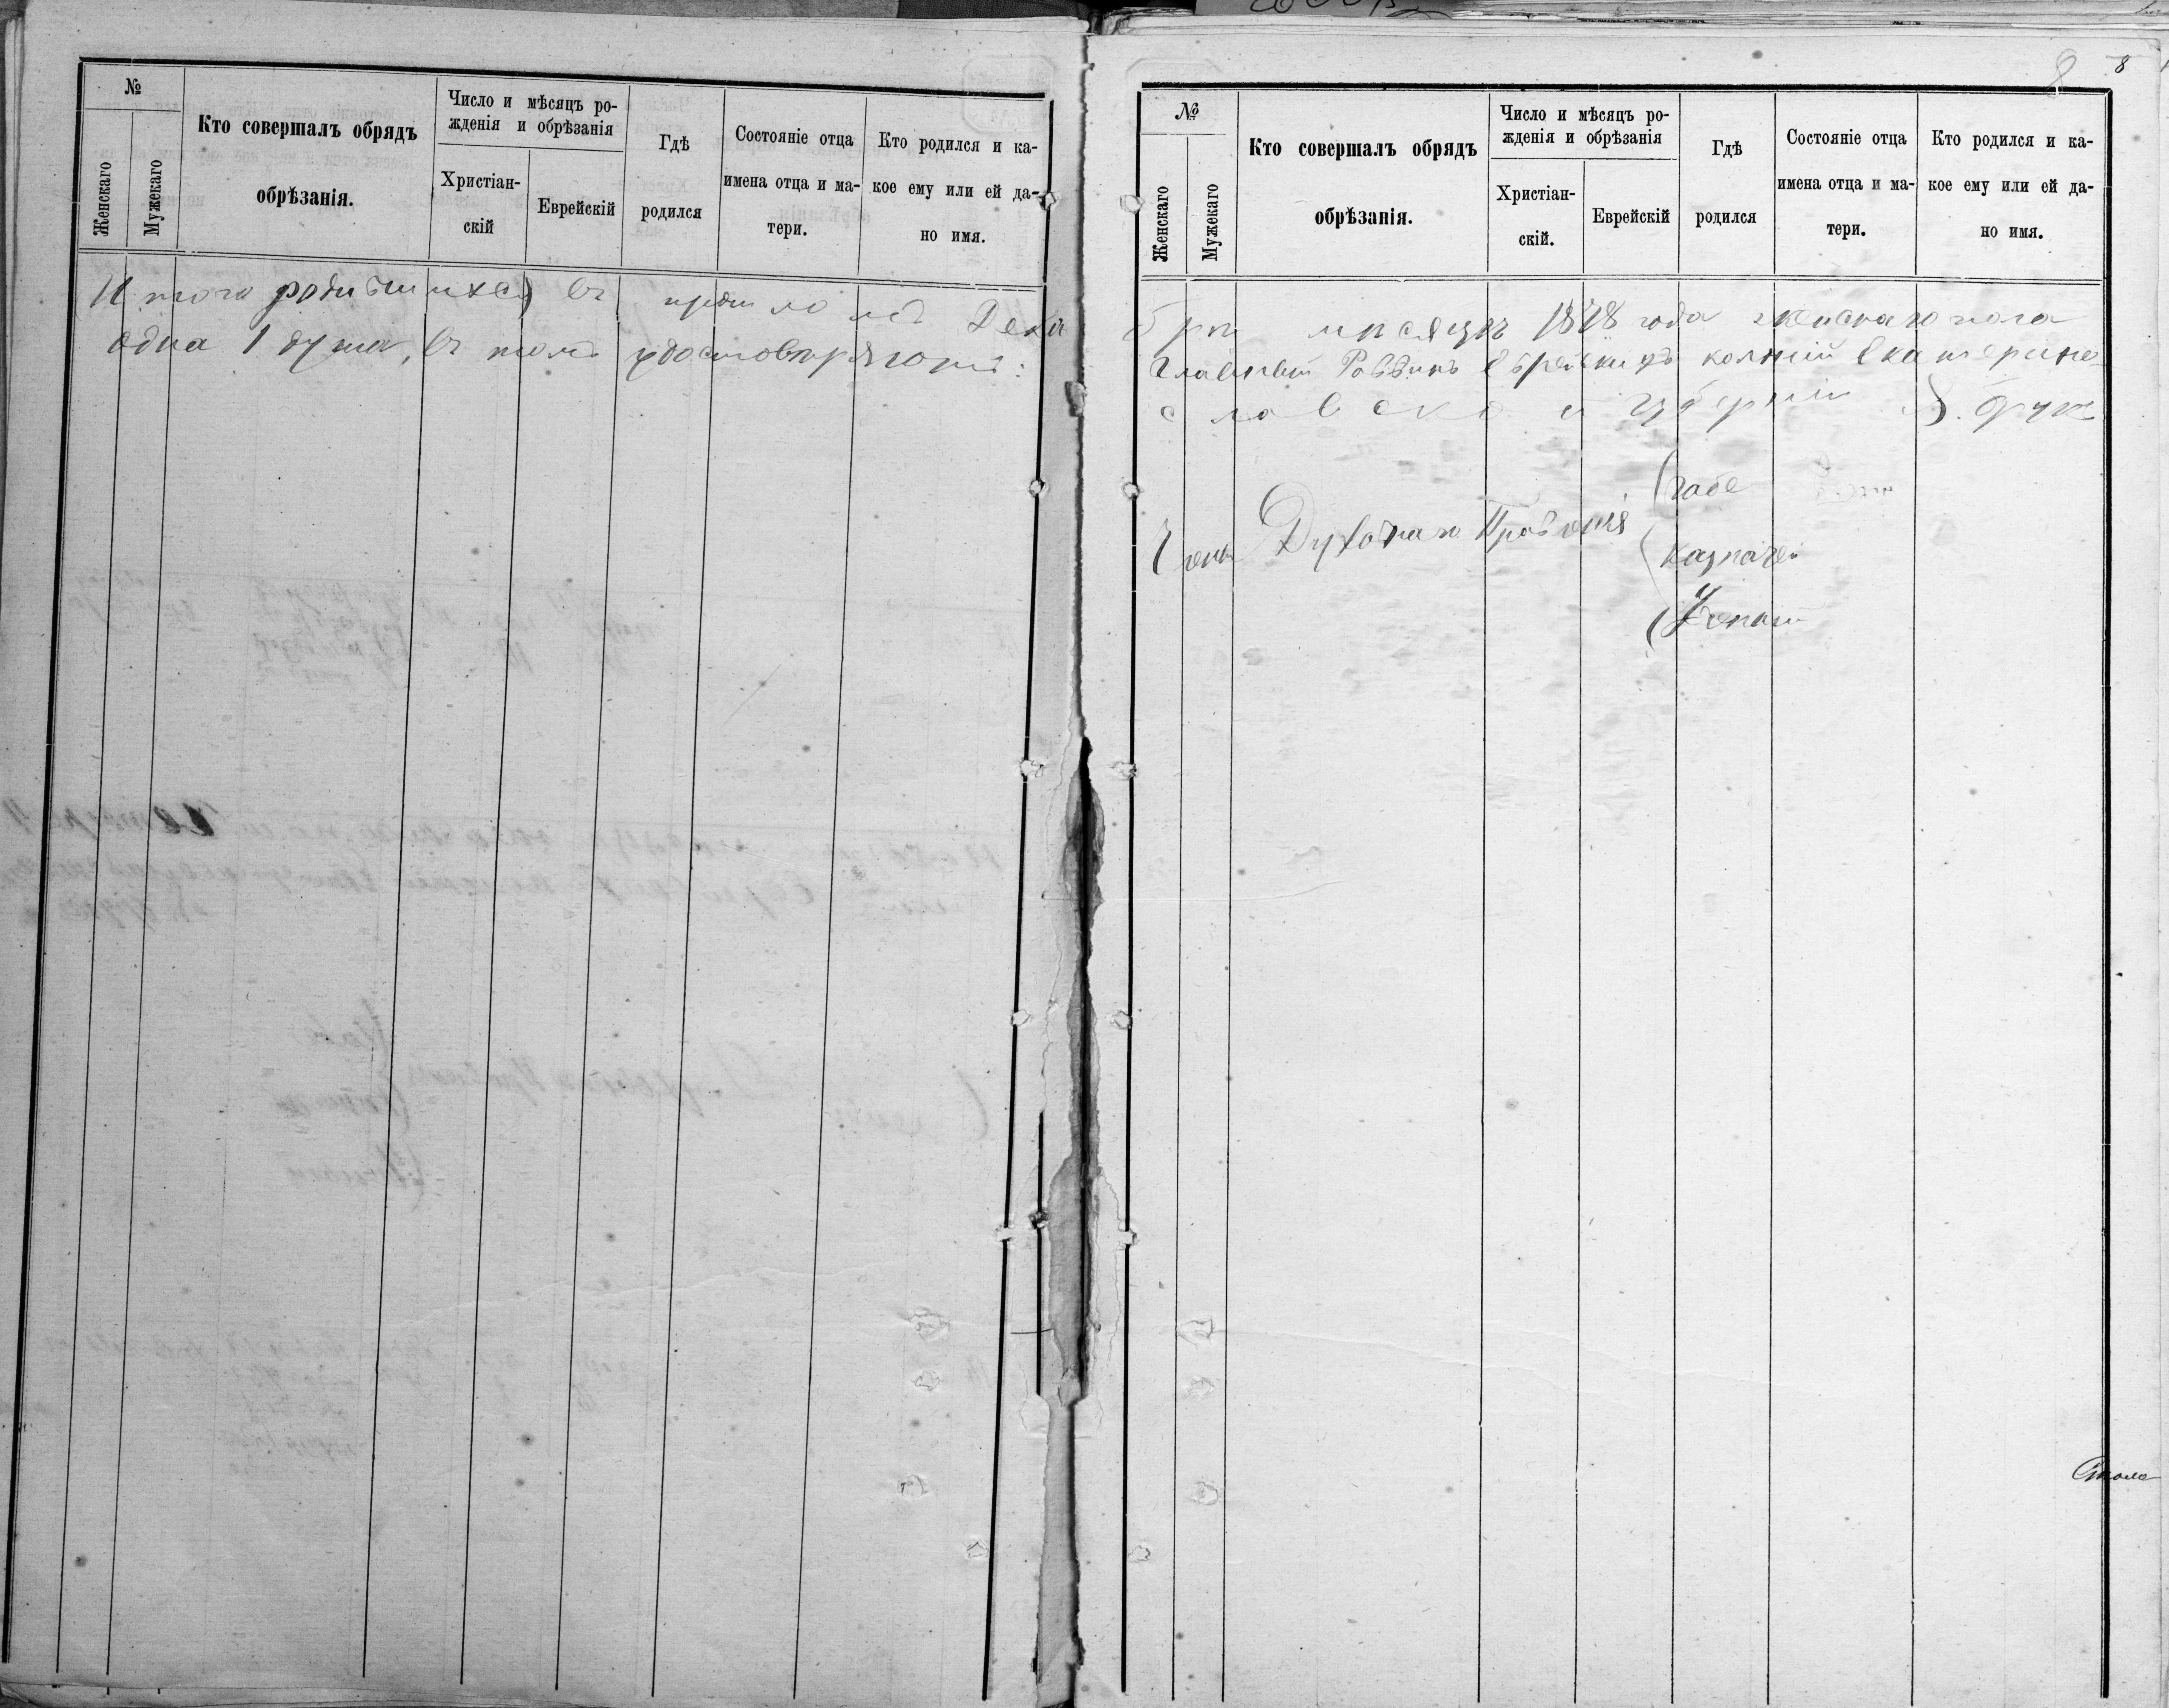 8 8
№
Женскаго
Мужскаго
Кто совершалъ обрядъ
обрѣзанія.
Число и мѣсяцъ ро-
жденія и обрѣзанія
Христіан-
скій
Еврейскій
Гдѣ
родился
Состояніе отца
имена отца и ма-
тери.
Кто родился и ка-
кое ему или ей да-
но имя.
Итого родившихся въ Дека
одна 1 душа, въ томъ удостовѣряютъ:
№
Женскаго
Мужскаго
Кто совершалъ обрядъ
обрѣзанія.
Число и мѣсяцъ ро-
жденія и обрѣзанія
Христіан-
скій.
Еврейскій
Гдѣ
родился
Состояніе отца
имена отца и ма-
тери.
Кто родился и ка-
кое ему или ей да-
но имя.
брѣ мѣсяцѣ 1878 года женскаго пола
Главный Раввинъ Еврейскихъ колній Екатерино-
славской губерніи
Члены Духовнаго Правленія
Габе
Казначей
Ученый